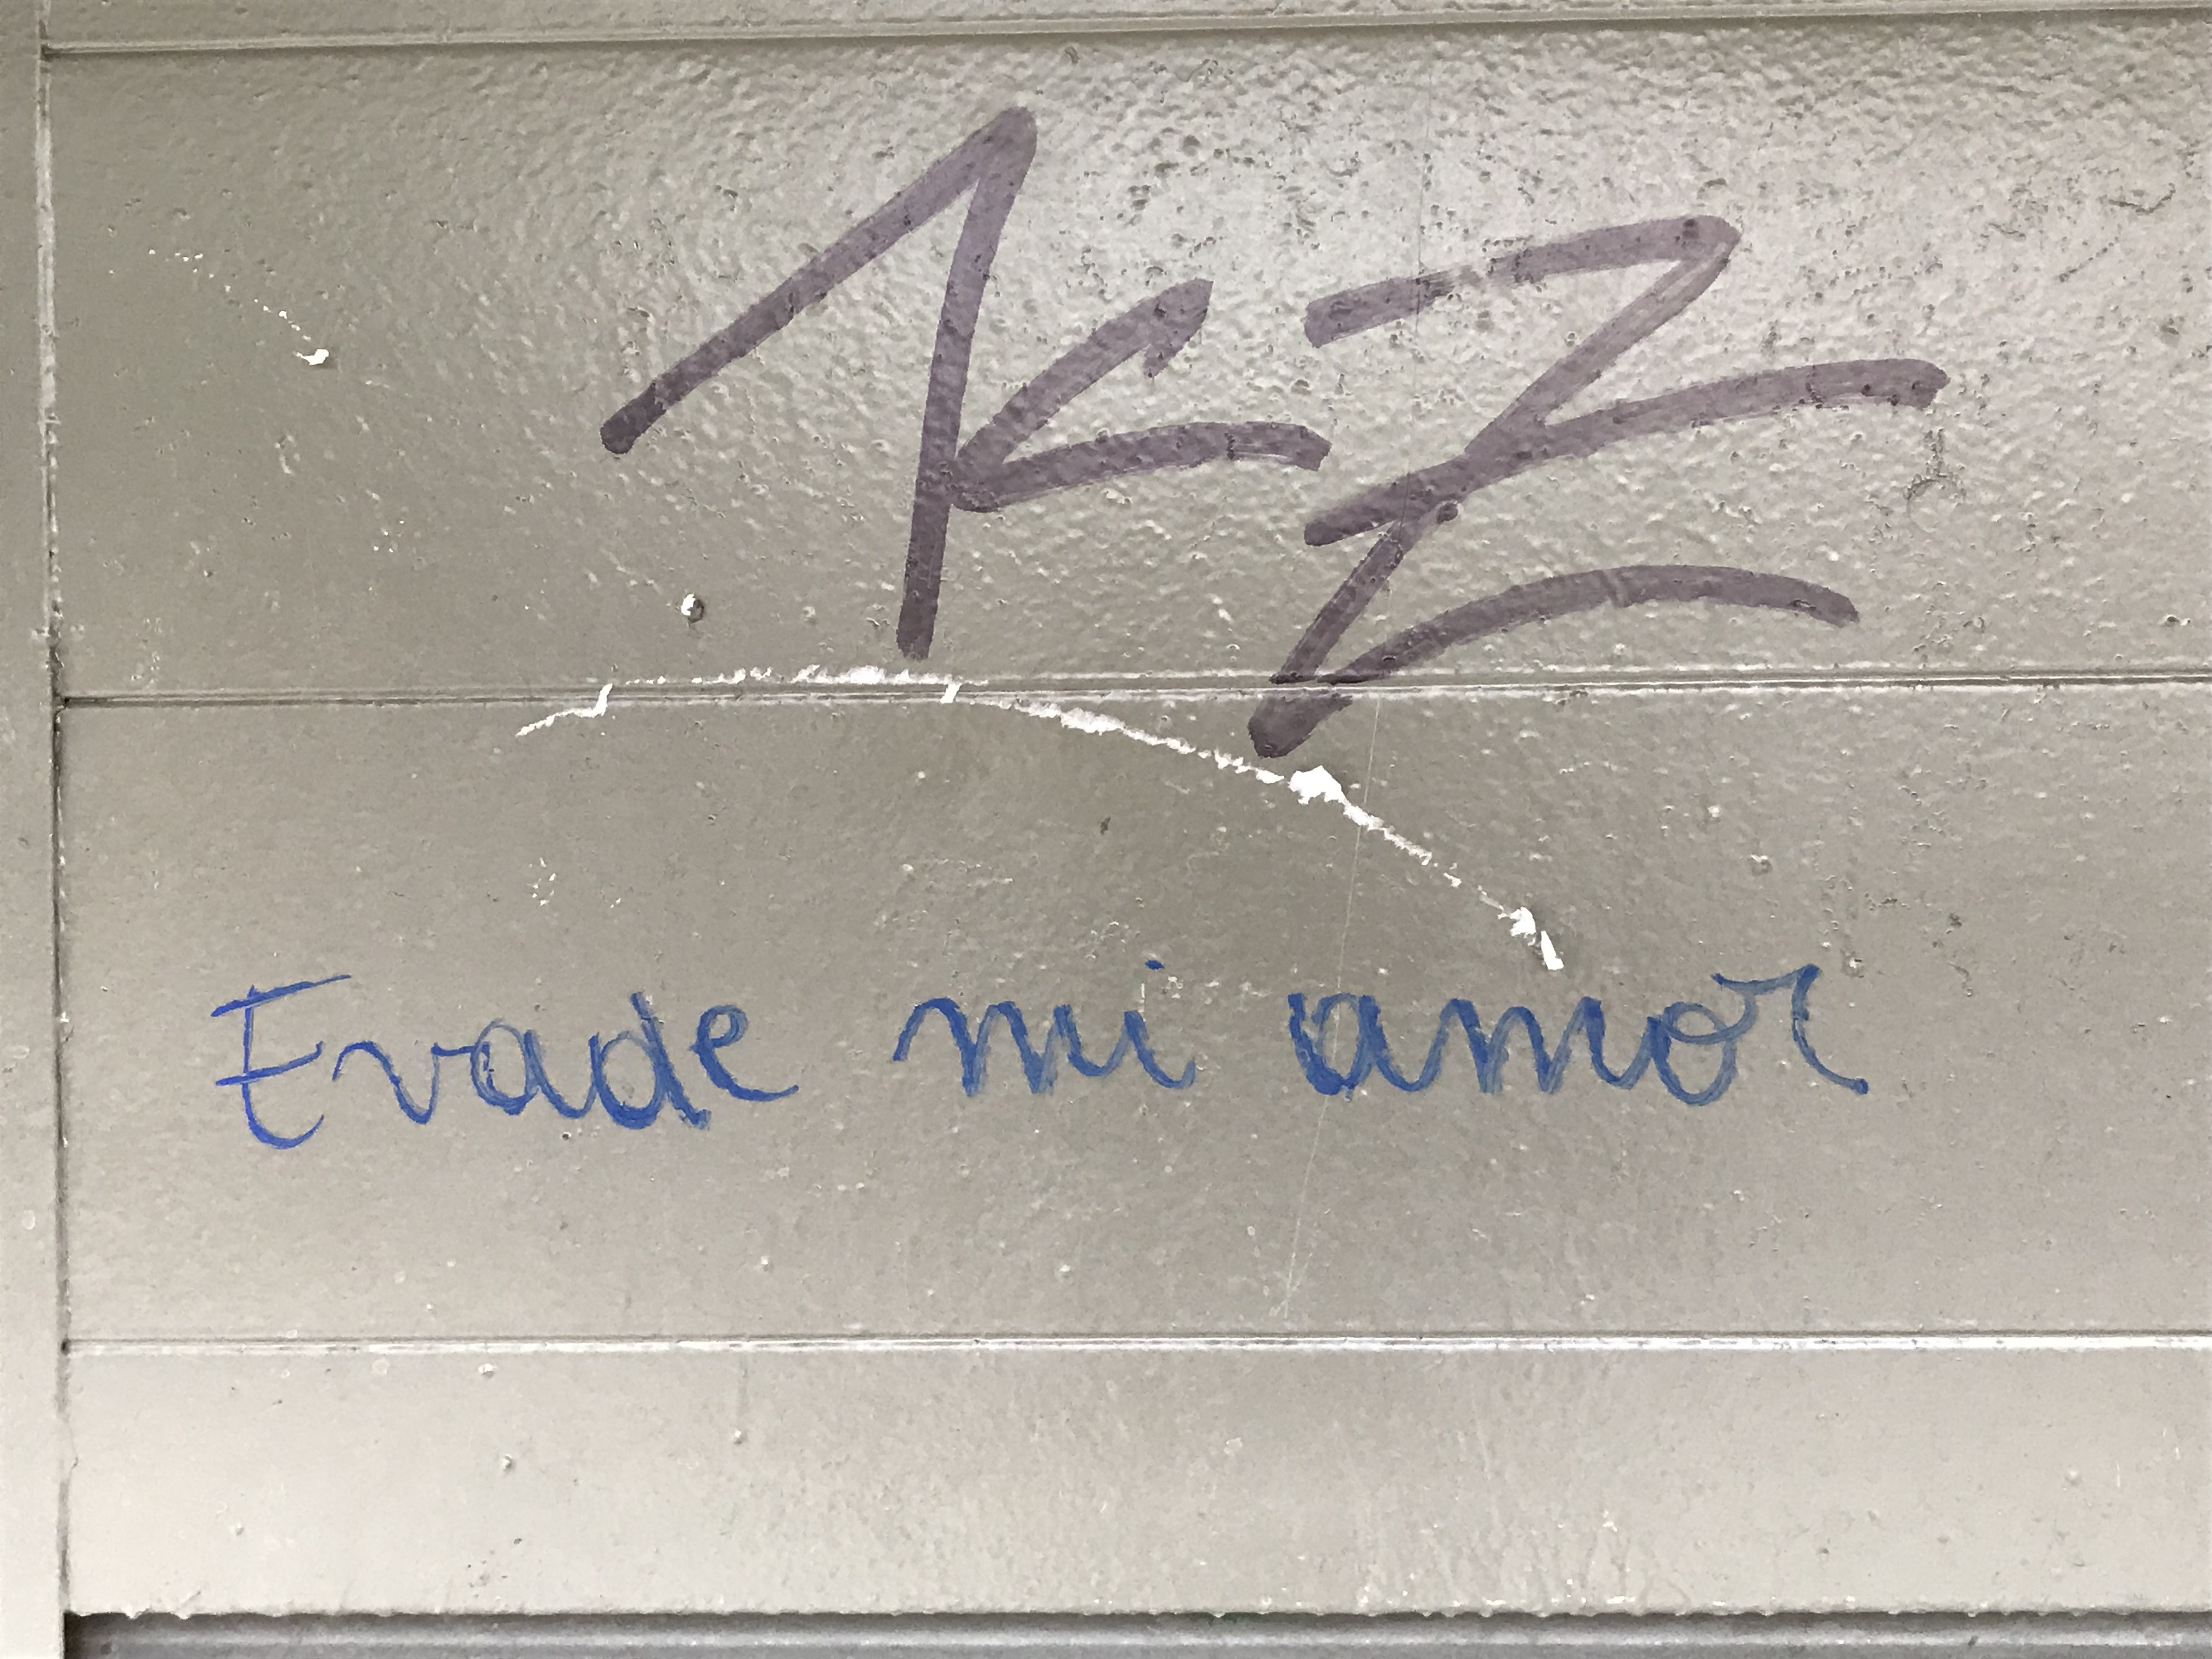 KZ
Evade mi amor